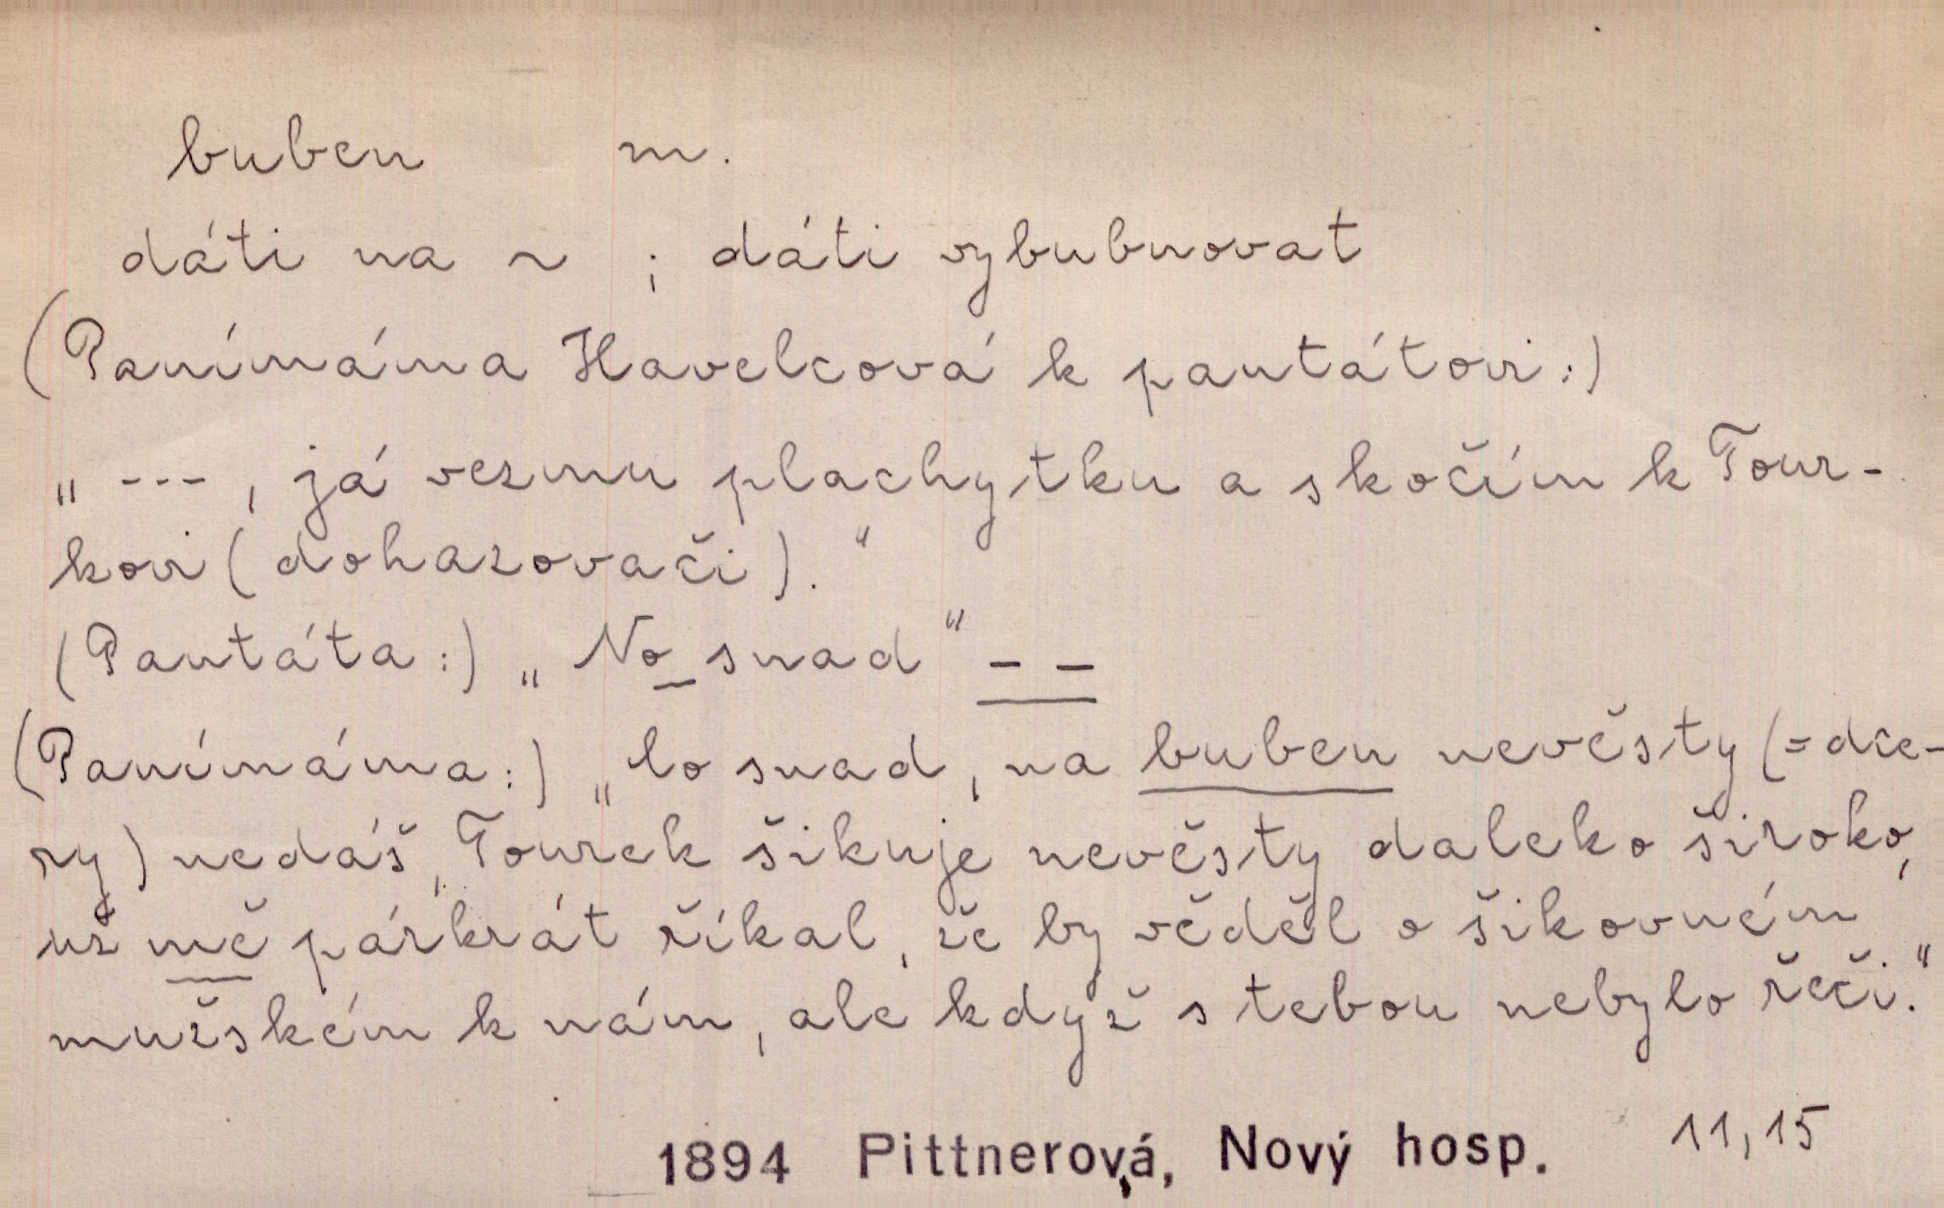 buben m.
dáti na ~ ; dáti vybubnovat
(Panímáma Havelcová k pantátovi:)
„ --- , já vezmu plachytku a skočím k Tour-
kovi (dohazovači).“
(Pantáta:) „No snad“ – –
(Panímáma:) „lo snad, na buben nevěsty (=dce-
ry) nedáš, Tourek šikuje nevěsty daleko široko,
už mě párkrát říkal, že by věděl o šikovném
mužském k nám, ale když s tebou nebylo řeči.“
1894 Pittnerová, Nový hosp. 11,15